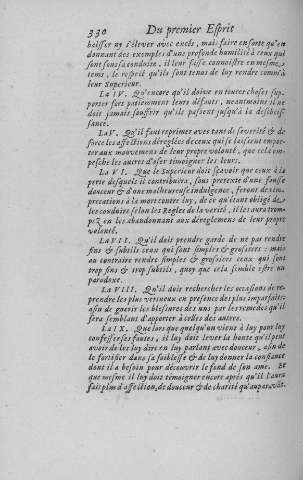 330 Du premier Esprit
baisser ny s'élever avec excés, mais faire en sorte qu'en
donnant des exemples d'une profonde humilité à ceux qui
sont sous sa conduite, il leur fasse connoistre en mesme-
tems, le respect qu'ils sont tenus de luy rendre comme à
leur Superieur.
La IV. Qu'encore qu'il doive en toutes choses sup-
porter fort patiemment leurs défauts, neantmoins il ne
doit jamais souffrir qu'ils passent jusqu'à la desobeïs-
sance.
La V. Qu'il faut reprimer avec tant de severité & de
force les affections déreglées de ceux qui se laissent empor-
ter aux mouvemens de leur propre volonté, que cela em-
pesche les autres d'oser témoigner les leurs.
La VI. Que le Superieur doit sçavoir que ceux à la
perte desquels il contribuëra, sous pretexte d'une fausse
douceur & d'une malheureuse indulgence, feront des im-
precations à la mort contre luy, de ce qu'étant obligé de
les conduire selon les Regles de la verité, il les aura trom-
pez en les abandonnant aux déreglemens de leur propre
volonté.
La VII. Qu'il doit prendre garde de ne pas rendre
fins & subtils ceux qui sont simples & grossiers: mais
au contraire rendre simples & grossiers ceux qui sont
trop fins & trop subtils, quoy que cela semble estre un
paradoxe.
La VIII. Qu'il doit rechercher les occasions de re-
prendre les plus vertueux en presence des plus imparfaits:
afin de guerir les blessures des uns par les remedes qu'il
fera semblant d'apporter à celles des autres.
La IX. Que lors que quelqu'un viens à luy pour luy
confesser ses fautes, il luy doit lever la honte qu'il peut
avoir de les luy dire en luy parlant avec douceur, afin de
le fortifier dans sa foiblesse & de luy donner la confiance
dont il a besoin pour découvrir le fond de son ame. Et
que mesme il luy doit témoigner encore aprés qu'il l'aura
fait plus d'affection, de douceur & de charité qu'auparavāt.